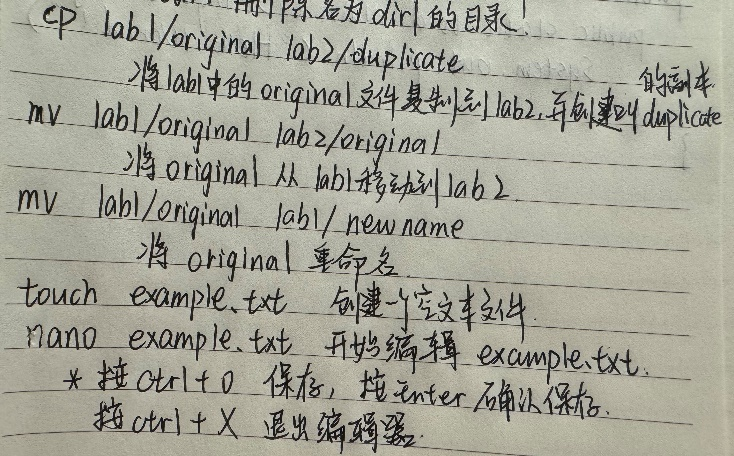 删除名为dir1的目录!
cp lab1/original lab2/duplicate
将lab1中的original文件复制到lab2,并创建叫duplicate的副本
mv lab1/original lab2/original
将original从lab1移动到lab2.
mv lab1/original lab1/newname
将original重命名.
touch example.txt 创建一个空文本文件.
nano example.txt 开始编辑example.txt.
* 按ctrl+O 保存,按Enter确认保存.
按ctrl+X 退出编辑器.